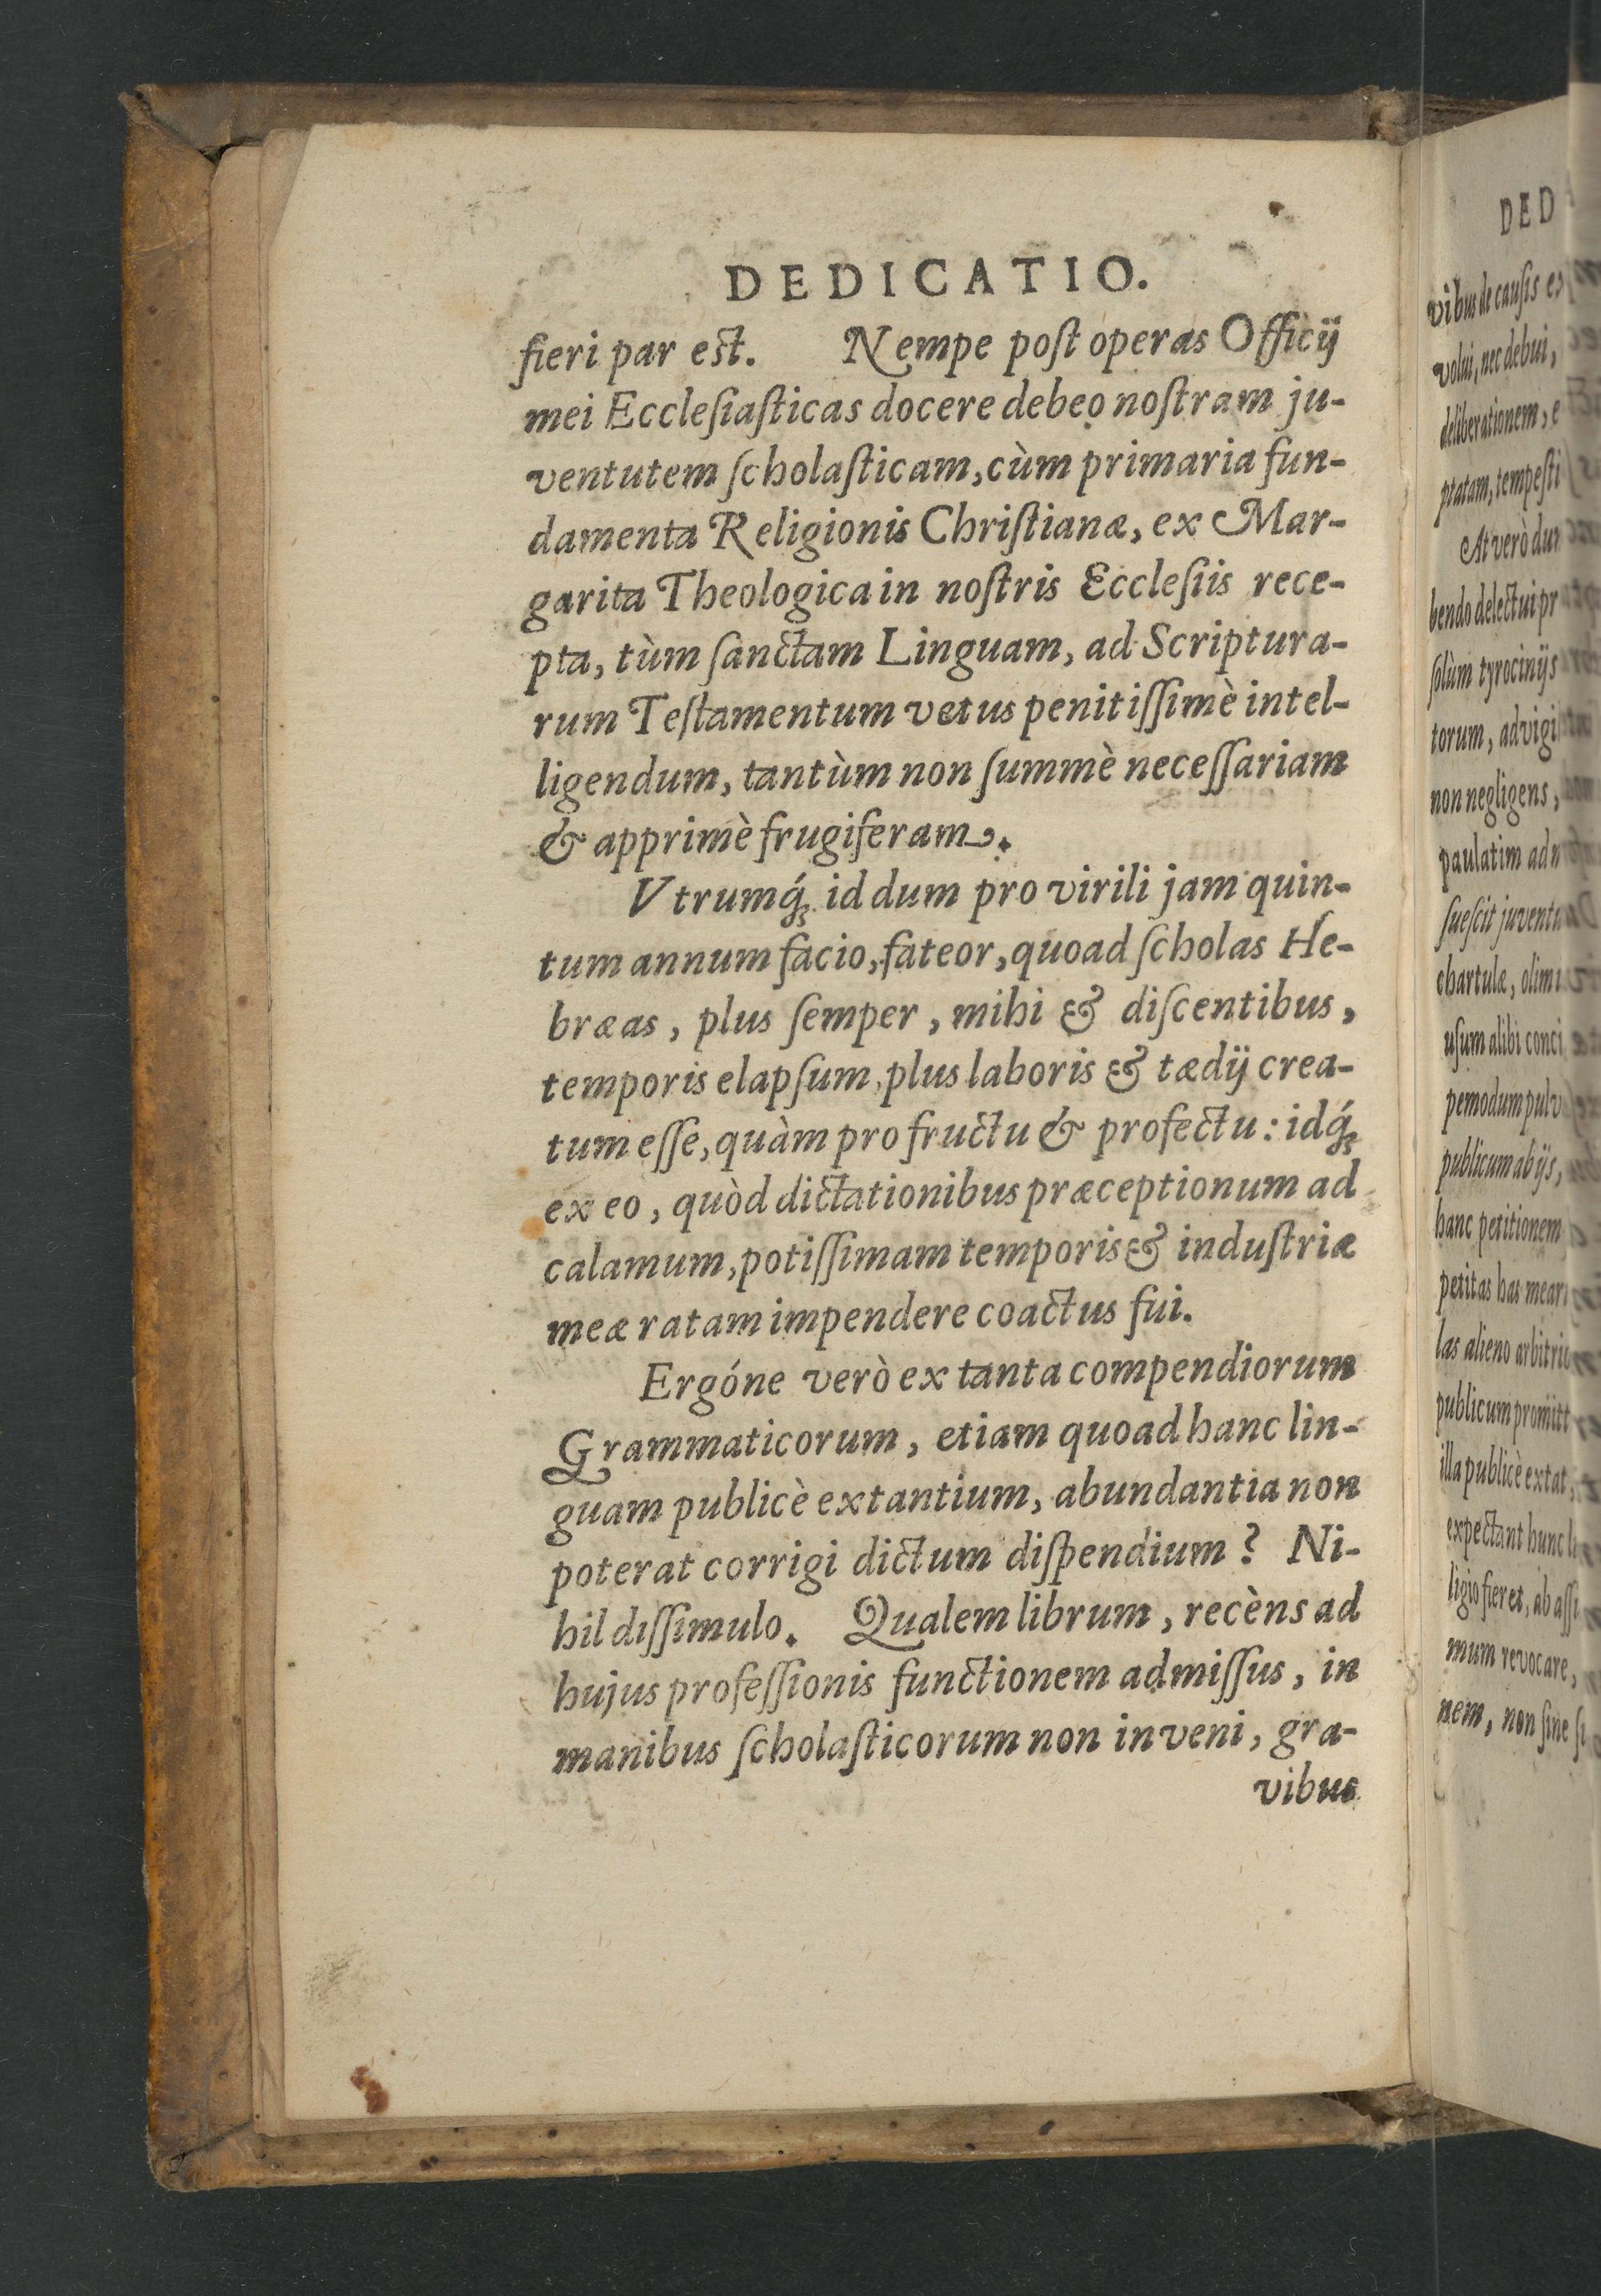 DEDICATIO.
fieri par est. Nempe poſt operas Officij
mei Eccleſiaſticas docere debeo noſtram ju-
ventutem ſcholaſticam, cùm primaria fun-
damenta Religionis Chriſtianæ, ex Mar-
garita Theologica in noſtris Eccleſiis rece-
pta, tùm ſanctam Linguam, ad Scriptura-
rum Teſtamentum vetus penitiſſimè intel-
ligendum, tantùm non ſummè neceſſariam
& apprimè frugiferam.
Vtrumq́; id dum pro virili jam quin-
tum annum facio, fateor, quoad ſcholas He-
bræas, plus ſemper, mihi & diſcentibus,
temporis elapſum, plus laboris & tædij crea-
tum eſſe, quàm pro fructu & profectu: idq́;
ex eo, quòd dictationibus præceptionum ad
calamum, potiſſimam temporis & induſtriæ
meæ ratam impendere coactus fui.
Ergóne verò ex tanta compendiorum
Grammaticorum, etiam quoad hanc lin-
guam publicè extantium, abundantia non
poterat corrigi dictum diſpendium? Ni-
hil diſſimulo. Qualem librum, recèns ad
hujus profeſſionis functionem admiſſus, in
manibus ſcholaſticorum non inveni, gra-
vibus
DED
vibus de cauſis ex
volui, nec debui,
deliberationem, e
ptatam, tempeſti
At verò dum
bendo delectui pr
ſolùm tyrociniis
torum, ad vigi
non negligens,
paulatim ad n
ſueſcit juventu
chartulæ, olim
uſum alibi conci
pemodum pulv
publicum abijs,
hanc petitionem
petitas has mear
las alieno arbitrio
publicum promitt
illa publicè extat,
expectant hunc li
ligio fieret, ab aſſi
mum revocare,
nem, non ſine ſi